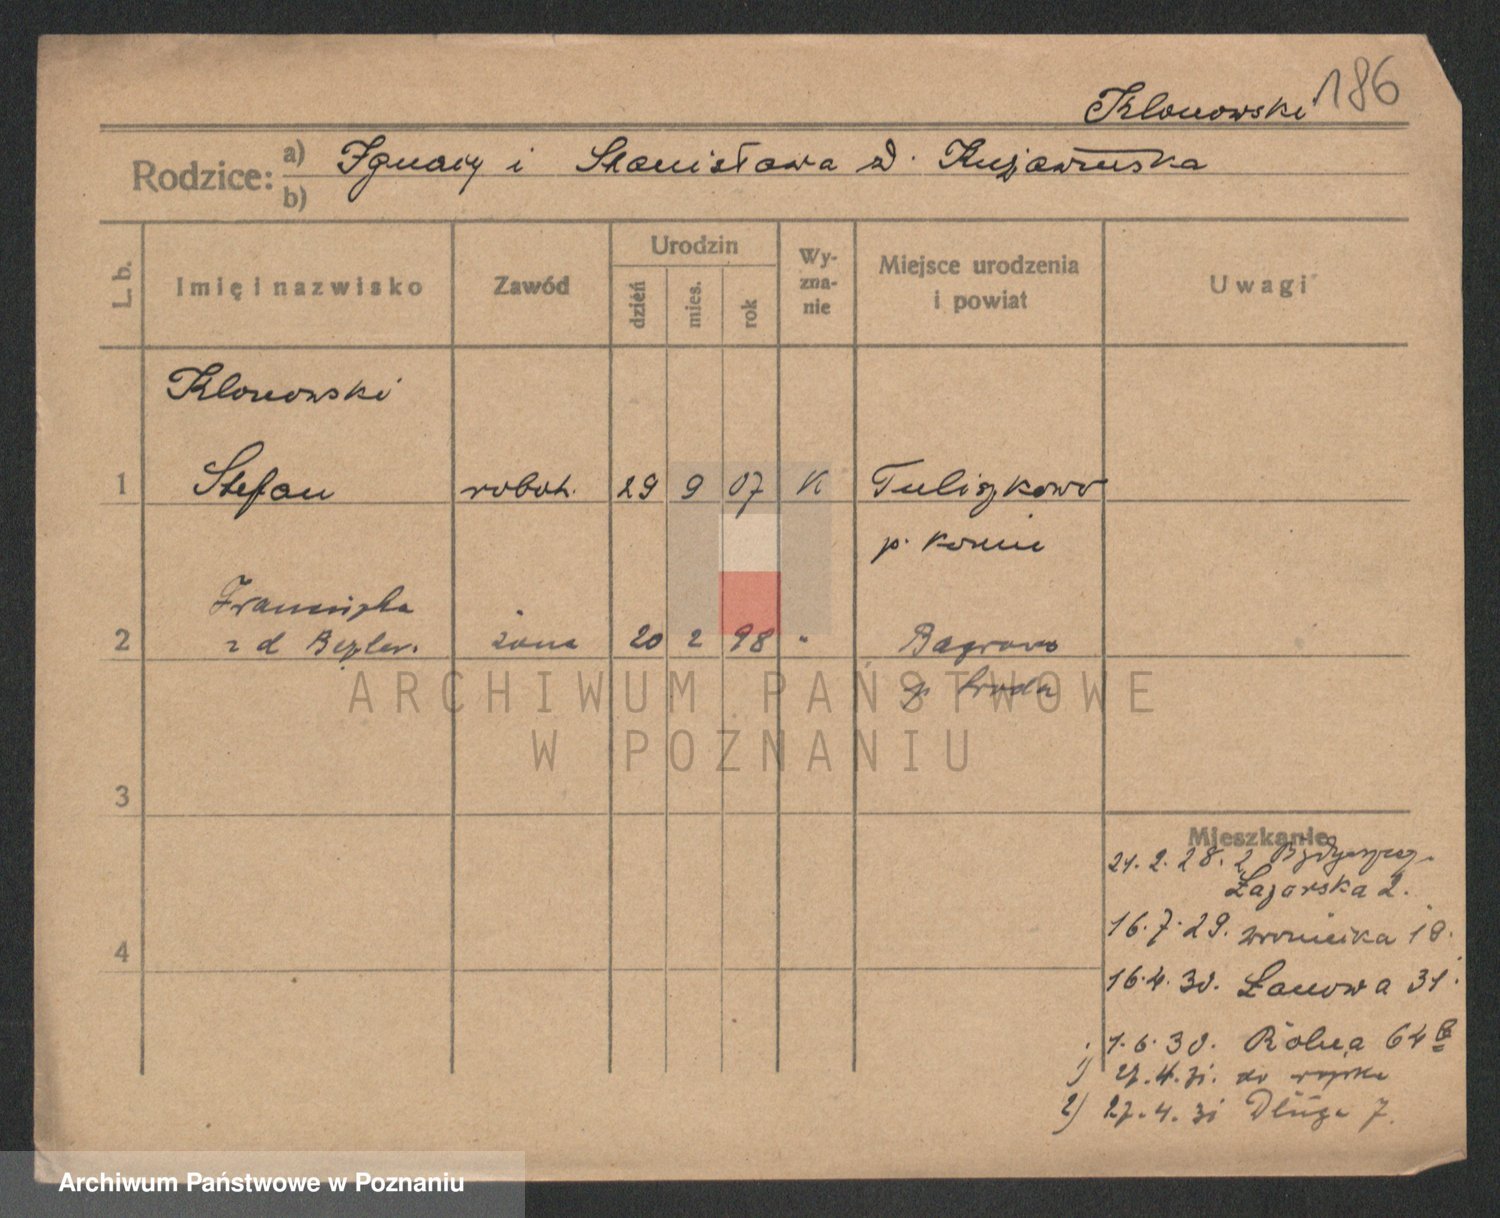 Klonowski 186
Rodzice: a) Ignacy i Stanisława d. Kujawska
b)
L. b. Imię i nazwisko Zawód Urodzin dzień mies. rok Wyznanie Miejsce urodzenia i powiat Uwagi
Klonowski
1 Stefan robot. 29 9 07 K Tuliszkowo
p. Konin
Franciszka
2 z d żona 20 2 98 " Bagrowo
p Środa
ARCHIWUM PAŃSTWOWE
W POZNANIU
3
Mieszkanie
21. 2. 28. z
Łazarska 2.
4
16. 7. 29. Wroniecka 18.
16. 4. 30. Łanowa 31.
1. 6. 30. Rolna 64
1) 27. 4. 31. do wojska
2) 27. 4. 31 Długa 7.
Archiwum Państwowe w Poznaniu